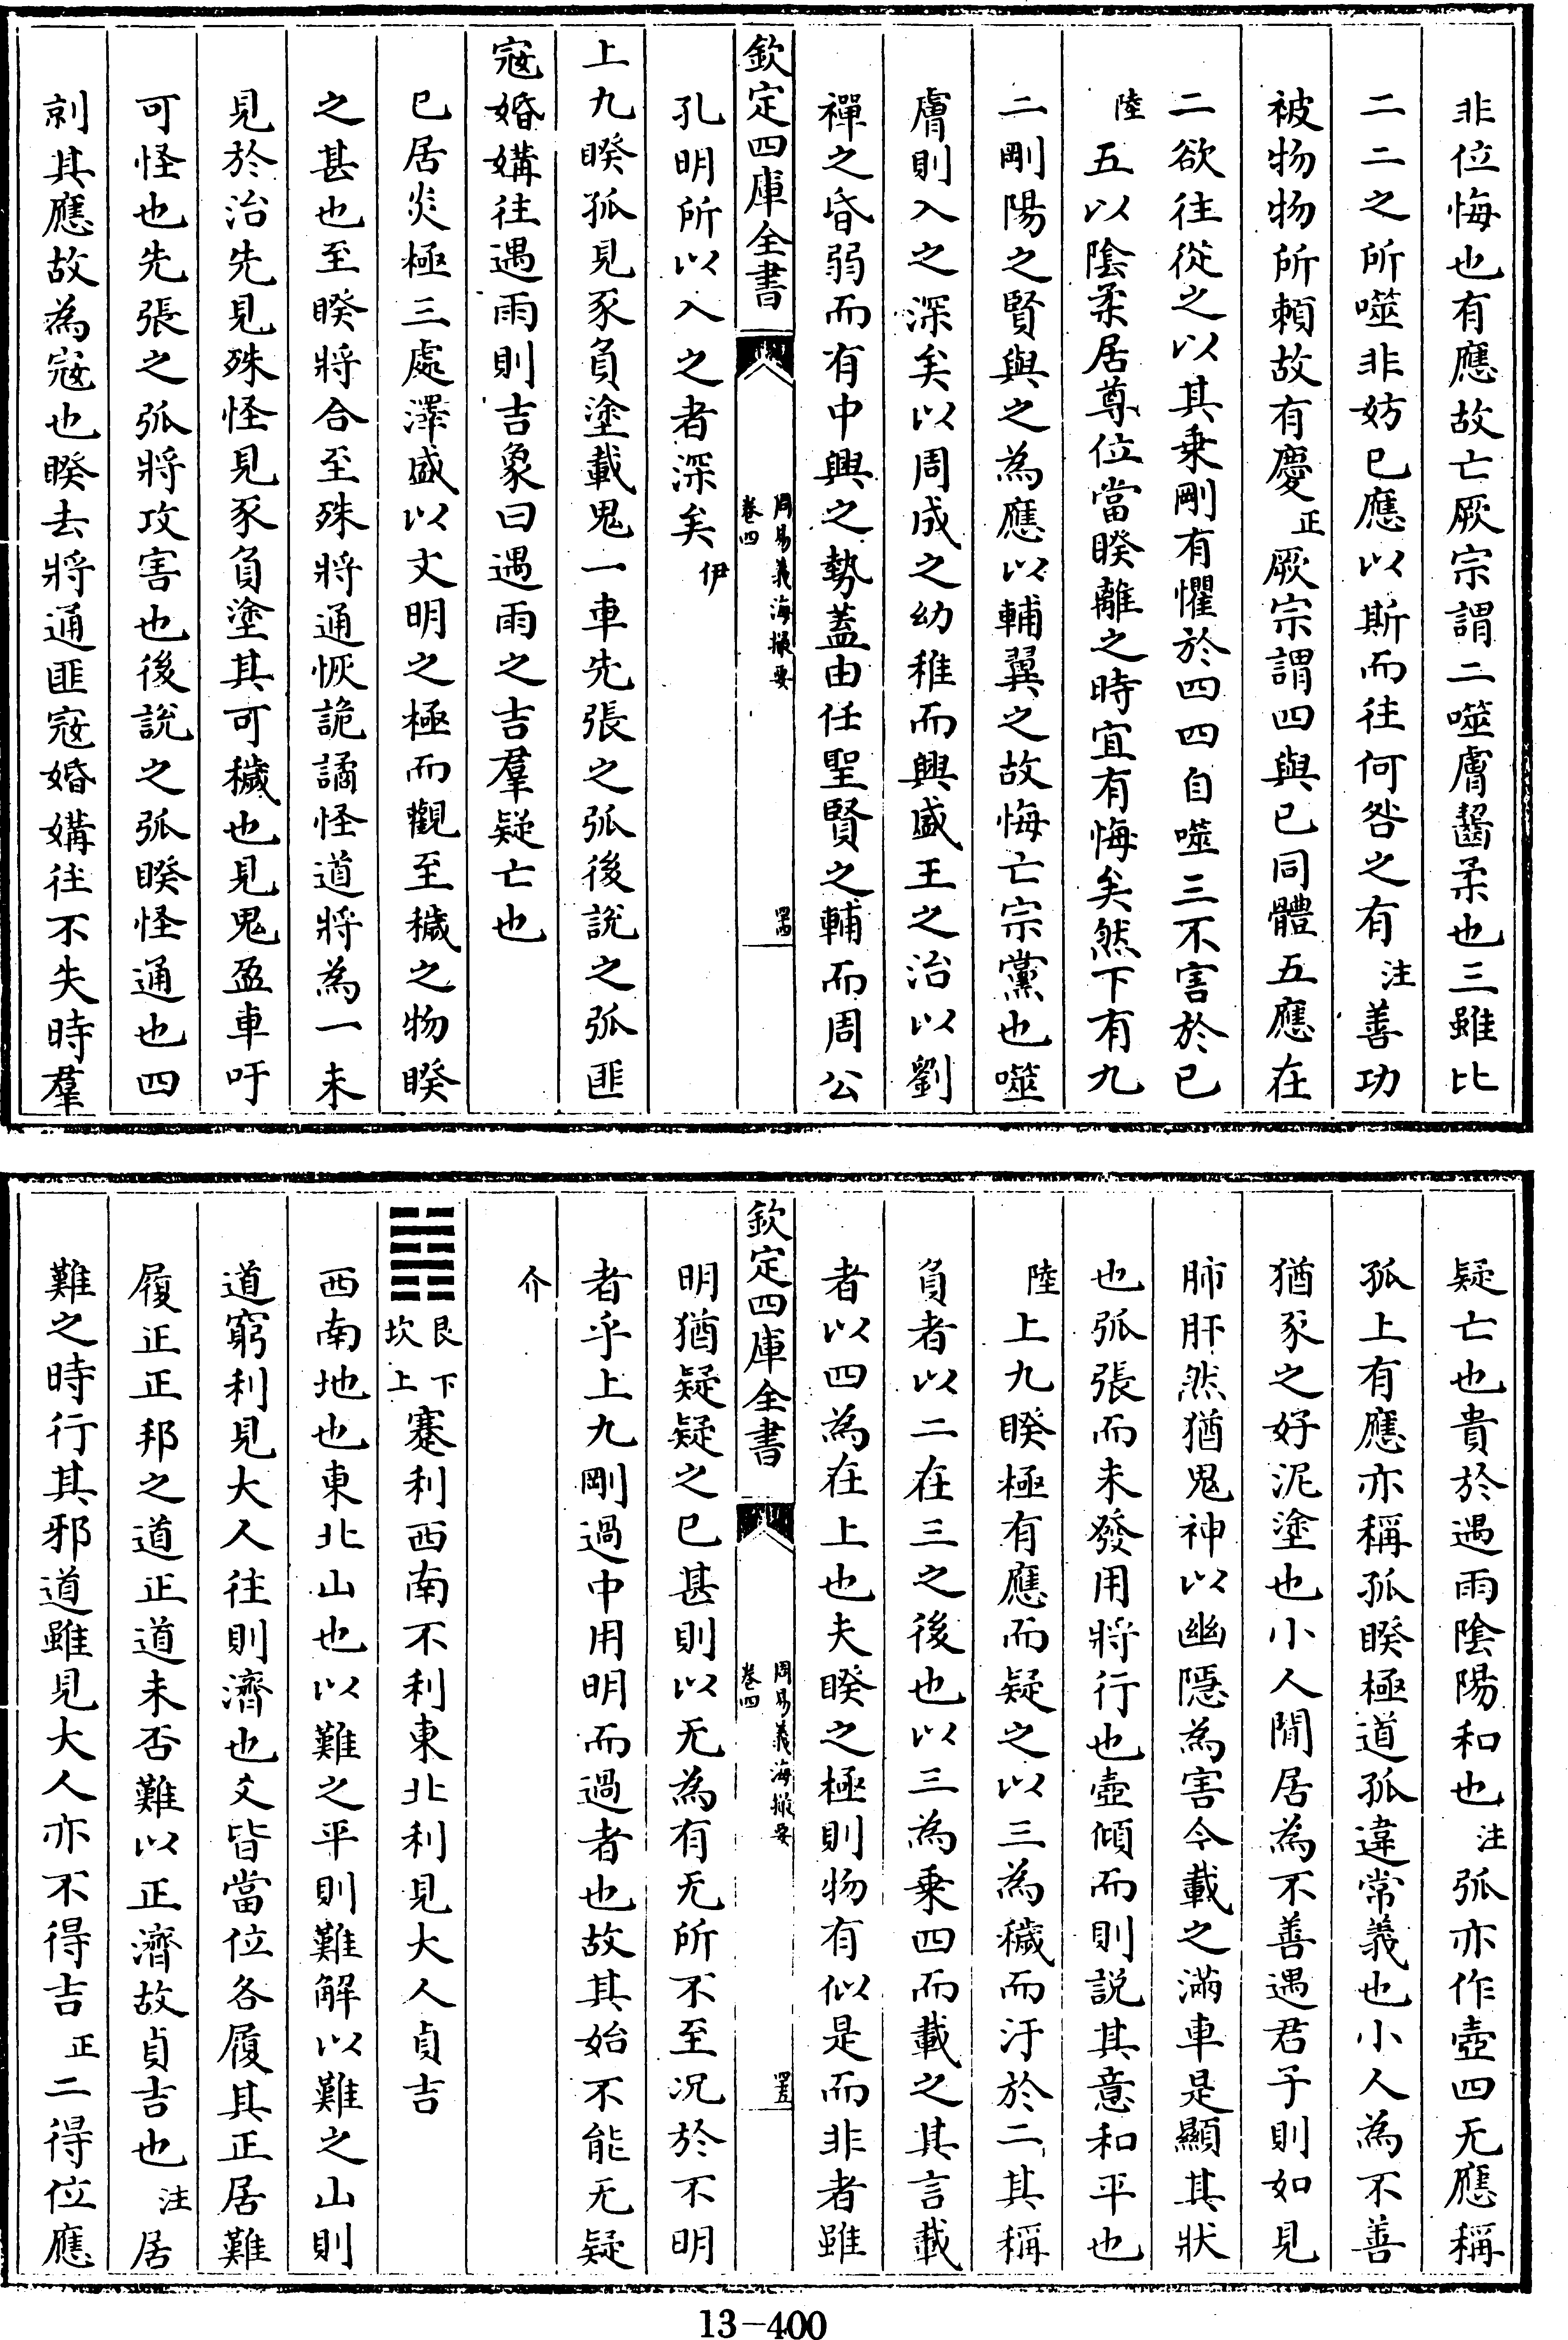 非位悔也有應故亡厥宗謂二噬膚齧柔也三雖比
二二之所噬非妨已應以斯而往何咎之有注善功
被物物所賴故有慶正厥宗謂四與已同體五應在
二欲往從之以其乗剛有懼於四四自噬三不害於已
陸五以陰柔居尊位當睽離之時宜有悔矣然下有九
二剛陽之賢與之為應以輔翼之故悔亡宗黨也噬
膚則入之深矣以周成之幼稚而興盛王之治以劉
禪之昏弱而有中興之勢蓋由任聖賢之輔而周公
欽定四庫全書
周易義海撮要
卷四
罢
孔明所以入之者深矣伊
上九睽孤見豕負塗載鬼一車先張之弧後說之弧匪
寇婚媾往遇雨則吉象曰遇雨之吉羣疑亡也
已居炎極三處澤盛以文明之極而觀至穢之物睽
之甚也至睽將合至殊將通恢詭譎怪道將為一未
見於治先見殊怪見豕負塗其可穢也見鬼盈車吁
可怪也先張之弧將攻害也後說之弧睽怪通也四
剠其應故為寇也睽去將通匪寇婚媾往不失時羣
疑亡也貴於遇雨陰陽和也注弧亦作壺四无應稱
孤上有應亦稱孤睽極道孤違常義也小人為不善
猶豕之好泥塗也小人閒居為不善遇君子則如見
肺肝然猶鬼神以幽隱為害今載之滿車是顯其狀
也弧張而未發用將行也壺傾而則説其意和平也
陸上九睽極有應而疑之以三為穢而汙於二其稱
負者以二在三之後也以三為乗四而載之其言載
者以四為在上也夫睽之極則物有似是而非者雖
欽定四庫全書
周易義海撮要
卷四
明猶疑疑之已甚則以无為有无所不至况於不明
者乎上九剛過中用明而過者也故其始不能无疑
介
艮下
坎上
蹇利西南不利東北利見大人貞吉
西南地也東北山也以難之平則難解以難之山則
道窮利見大人往則濟也爻皆當位各履其正居難
履正正邦之道正道未否難以正濟故貞吉也注居
難之時行其邪道雖見大人亦不得吉正二得位應
13-400